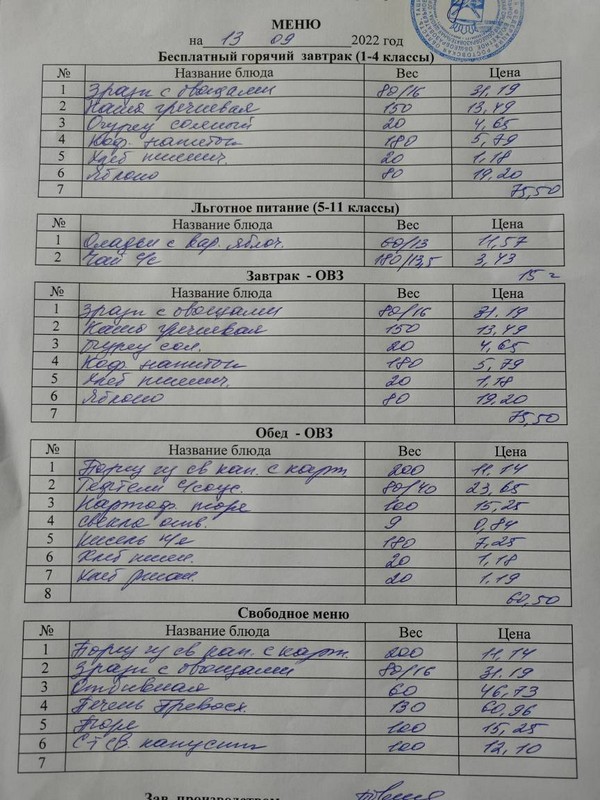 МЕНЮ
на 13 09 2022 год
Бесплатный горячий завтрак (1-4 классы)
№ Название блюда Вес Цена
1 Зразы с овощами 80/16 31,19
2 Каша гречневая 150 13,49
3 Огурец соленый 20 4,65
4 Коф. напиток 180 5,79
5 Хлеб пшенич. 20 1,18
6 Яблоко 80 19,20
7 75,50
Льготное питание (5-11 классы)
№ Название блюда Вес Цена
1 Оладьи с вар. яблоч. 60/13 11,57
2 Чай с/с 180/13,5 3,43
Завтрак - ОВЗ 15
№ Название блюда Вес Цена
1 Зразы с овощами 80/16 31.19
2 Каша гречневая 150 13,49
3 Огурец сол. 20 4,65
4 Коф. напиток 180 5,79
5 Хлеб пшенич. 20 1,18
6 Яблоко 80 19,20
7 75,50
Обед - ОВЗ
№ Название блюда Вес Цена
1 Борщ из св кап. с карт 200 11,14
2 Тефтели с/соус. 80/40 23,65
3 Картоф. пюре 100 15,25
4 свекла отв. 9 0,84
5 Кисель 180 7,25
6 Хлеб пшен. 20 1,18
7 Хлеб ржан. 20 1.19
8 60,50
Свободное меню
№ Название блюда Вес Цена
1 Борщ из св кап. с карт. 200 11,14
2 Зразы с овощами 80/16 31.19
3 Отбивная 60 46,73
4 Печень Превосх. 130 60,96
5 Пюре 100 15,25
6 Ст св. капусты 100 12,10
7
Зав. производством